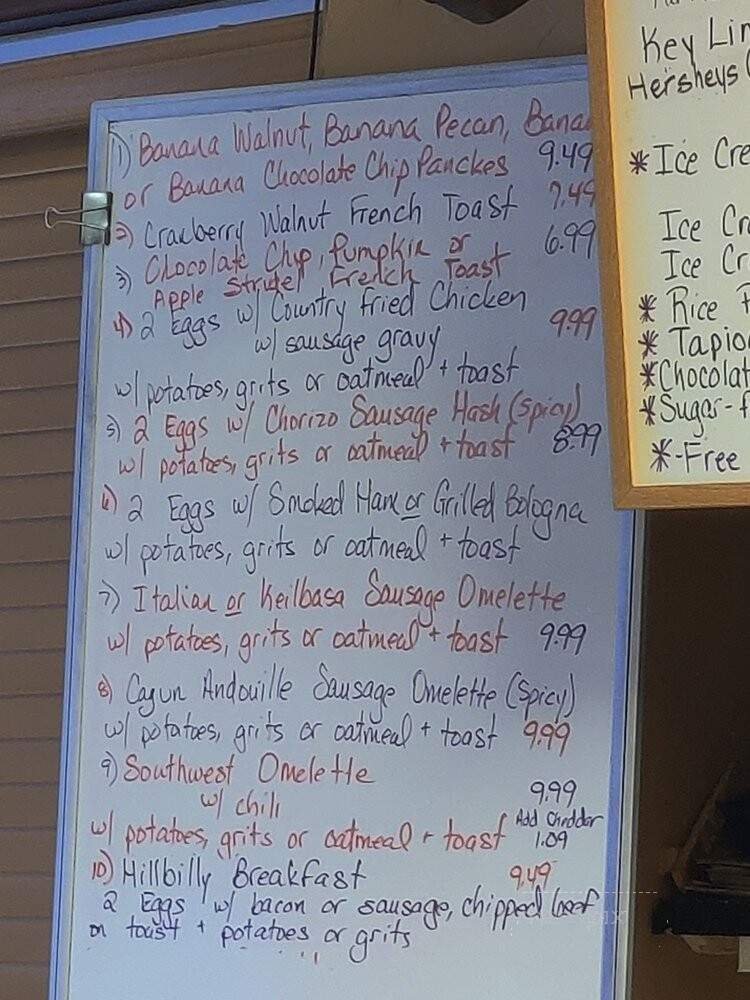 1) Banana Walnut, Banana Pecan, Bana
or Banana Chocolate Chip Panckes 9.49
2) Cranberry Walnut French Toast 7.49
3) Chocolate Chip, Pumpkin or 6.99
Apple Strudel French Toast
4) 2 Eggs w/ Country Fried Chicken
w/ sausage gravy 9.99
w/ potatoes, grits or oatmeal + toast
5) 2 Eggs w/ Chorizo Sausage Hash (spicy)
w/ potatoes, grits or oatmeal + toast 8.99
6) 2 Eggs w/ Smoked Ham or Grilled Bologna
w/ potatoes, grits or oatmeal + toast
7) Italian or Keilbasa Sausage Omelette
w/ potatoes, grits or oatmeal + toast 9.99
8) Cajun Andouille Sausage Omelette (spicy)
w/ potatoes, grits or oatmeal + toast 9.99
9) Southwest Omelette
w/ chili 9.99
w/ potatoes, grits or oatmeal + toast Add Cheddar
1.09
10) Hillbilly Breakfast 9.49
2 Eggs w/ bacon or sausage, chipped beef
on toast + potatoes or grits
Key Lim
Hersheys
* Ice Cre
Ice Cr
Ice Cr
* Rice P
* Tapio
* Chocolat
* Sugar-f
*-Free